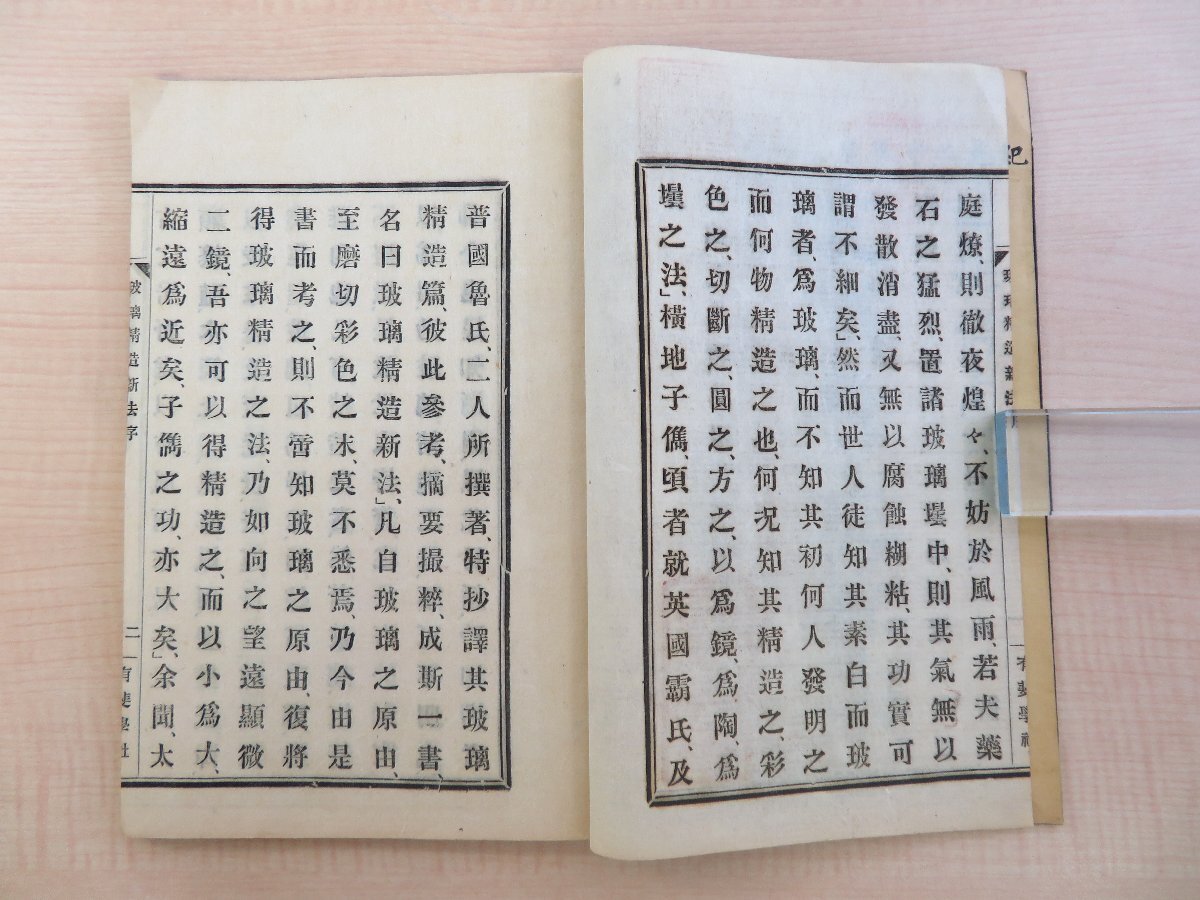 庭燎、則徹夜煌々、不妨於風雨、若夫藥
石之猛烈、置諸玻璃壜中、則其氣無以
發散消盡、又無以腐蝕糊粘、其功實可
謂不細矣」然而世人徒知其素白而玻
璃者、爲玻璃、而不知其初何人發明之
而何物精造之也、何況知其精造之、彩
色之、切斷之、圓之、方之、以爲鏡、爲陶、爲
壜之法」橫地子儁、頃者就英國霸氏、及
普國魯氏、二人所撰著、特抄譯其玻璃
精造篇、彼此參考、摘要撮粹、成斯一書、
名曰玻璃精造新法」凡自玻璃之原由、
至磨切彩色之末、莫不悉焉、乃今由是
書而考之、則不啻知玻璃之原由、復將
得玻璃精造之法、乃如向之望遠顯微
二鏡、吾亦可以得精造之、而以小爲大、
縮遠爲近矣、子儁之功、亦大矣」余聞、太
玻璃精造新法序
二
有斐學社